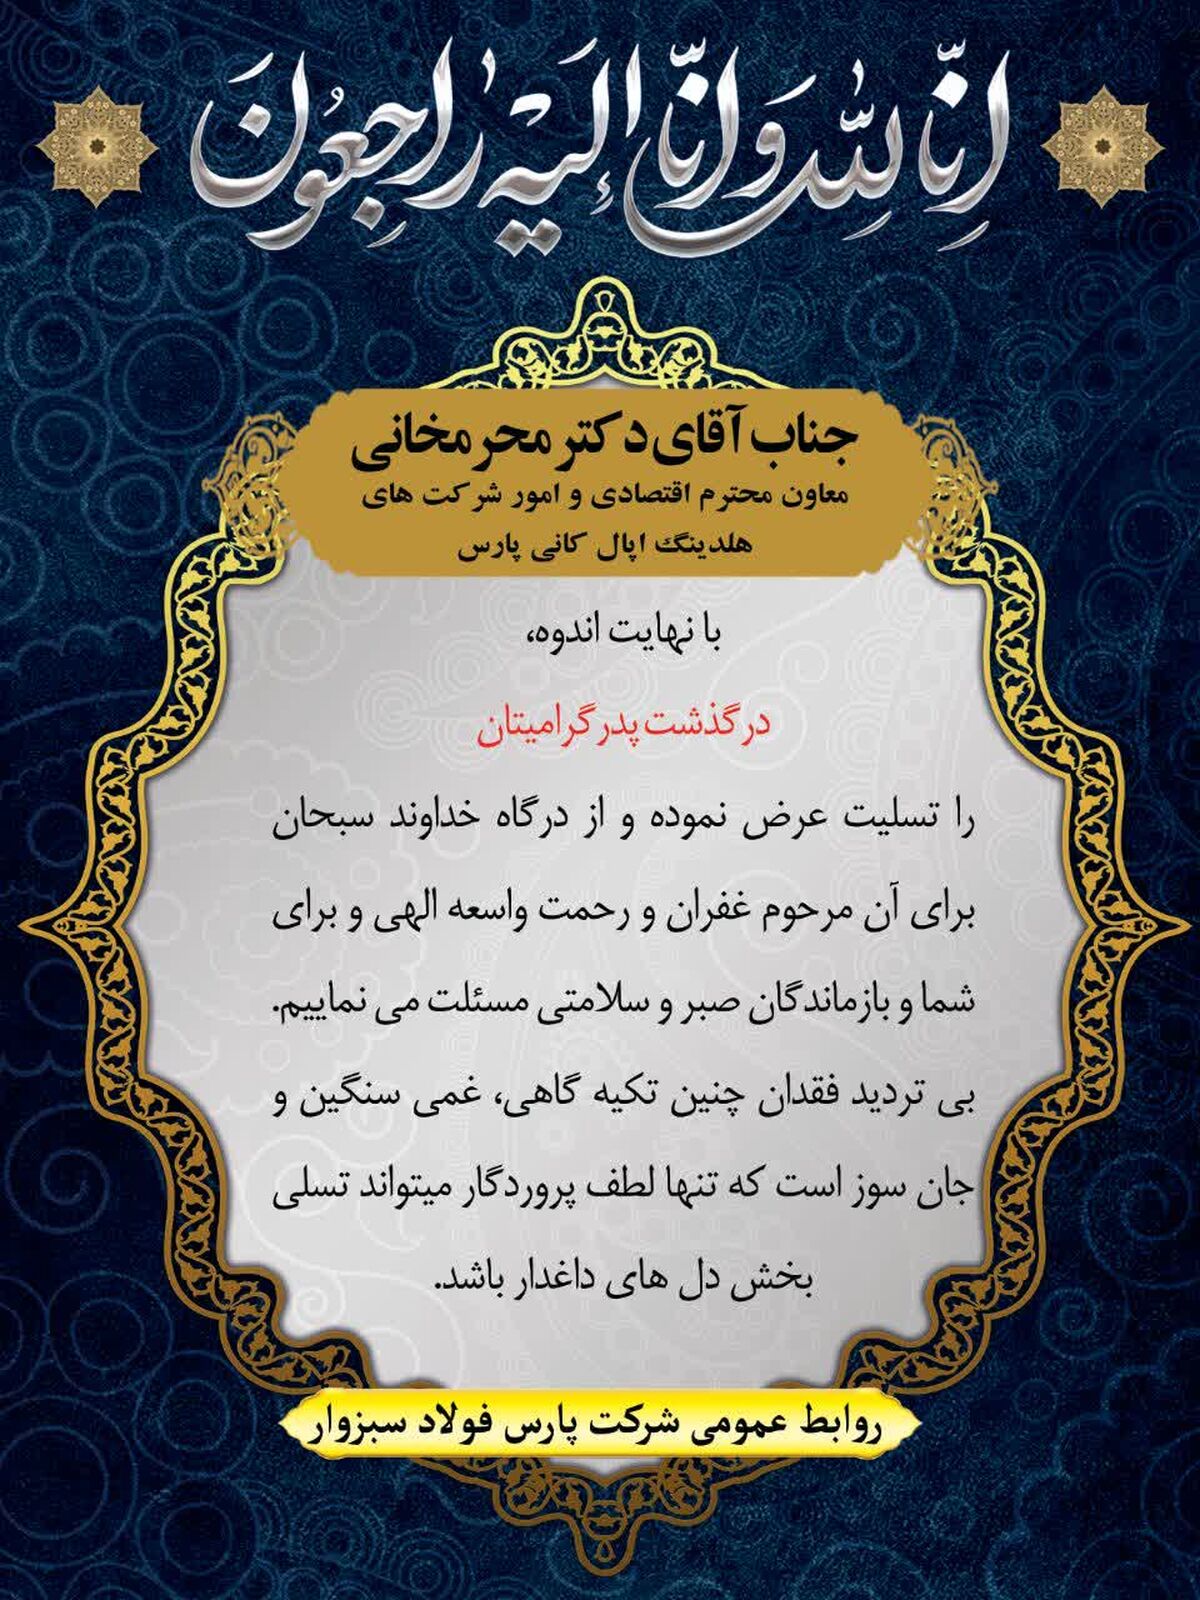 إِنَّا لِلَّٰهِ وَإِنَّا إِلَيْهِ رَاجِعُونَ
جناب آقای دکتر محرمخانی
معاون محترم اقتصادی و امور شرکت های
هلدینگ اپال کانی پارس
با نهایت اندوه،
درگذشت پدر گرامیتان
را تسلیت عرض نموده و از درگاه خداوند سبحان
برای آن مرحوم غفران و رحمت واسعه الهی و برای
شما و بازماندگان صبر و سلامتی مسئلت می نماییم.
بی تردید فقدان چنین تکیه گاهی، غمی سنگین و
جان سوز است که تنها لطف پروردگار میتواند تسلی
بخش دل های داغدار باشد.
روابط عمومی شرکت پارس فولاد سبزوار